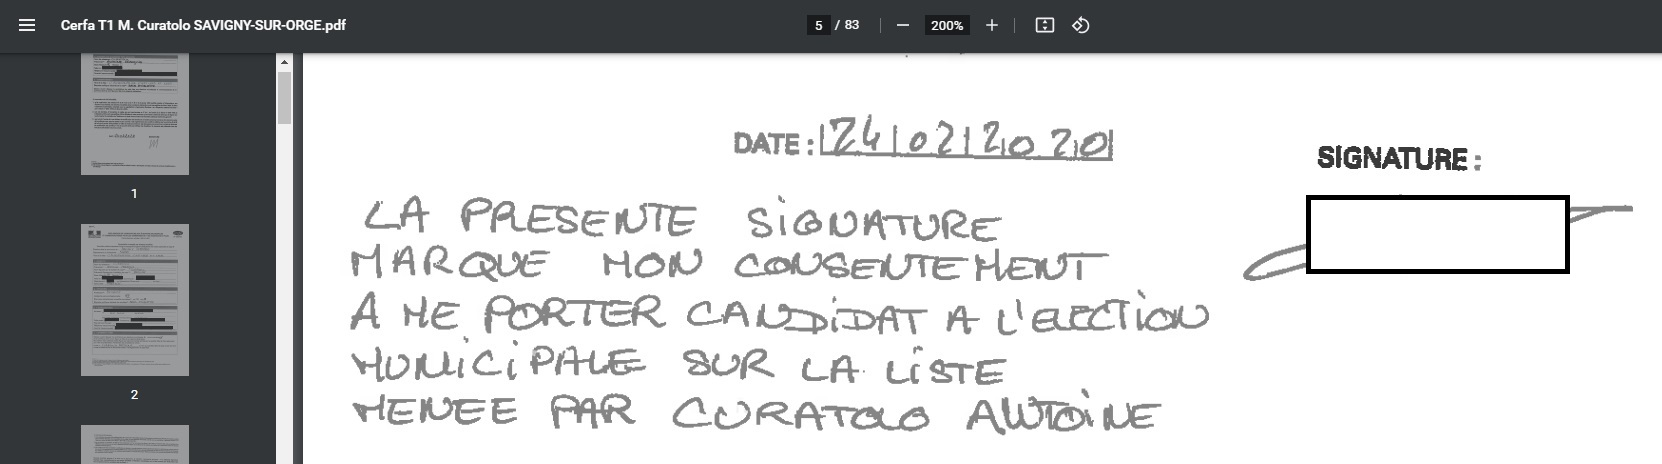 Cerfa T1 M. Curatolo SAVIGNY-SUR-ORGE.pdf
5 / 83
200%
1
2
DATE : 24 02 2020
SIGNATURE :
LA PRESENTE SIGNATURE
MARQUE MON CONSENTEMENT
A ME PORTER CANDIDAT A L'ELECTION
MUNICIPALE SUR LA LISTE
MENEE PAR CURATOLO ANTOINE